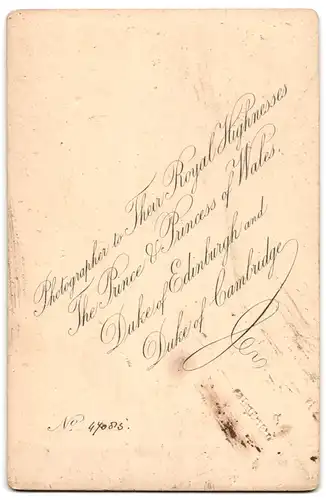 Photographer to Their Royal Highnesses
The Prince & Princess of Wales.
Duke of Edinburgh and
Duke of Cambridge
No